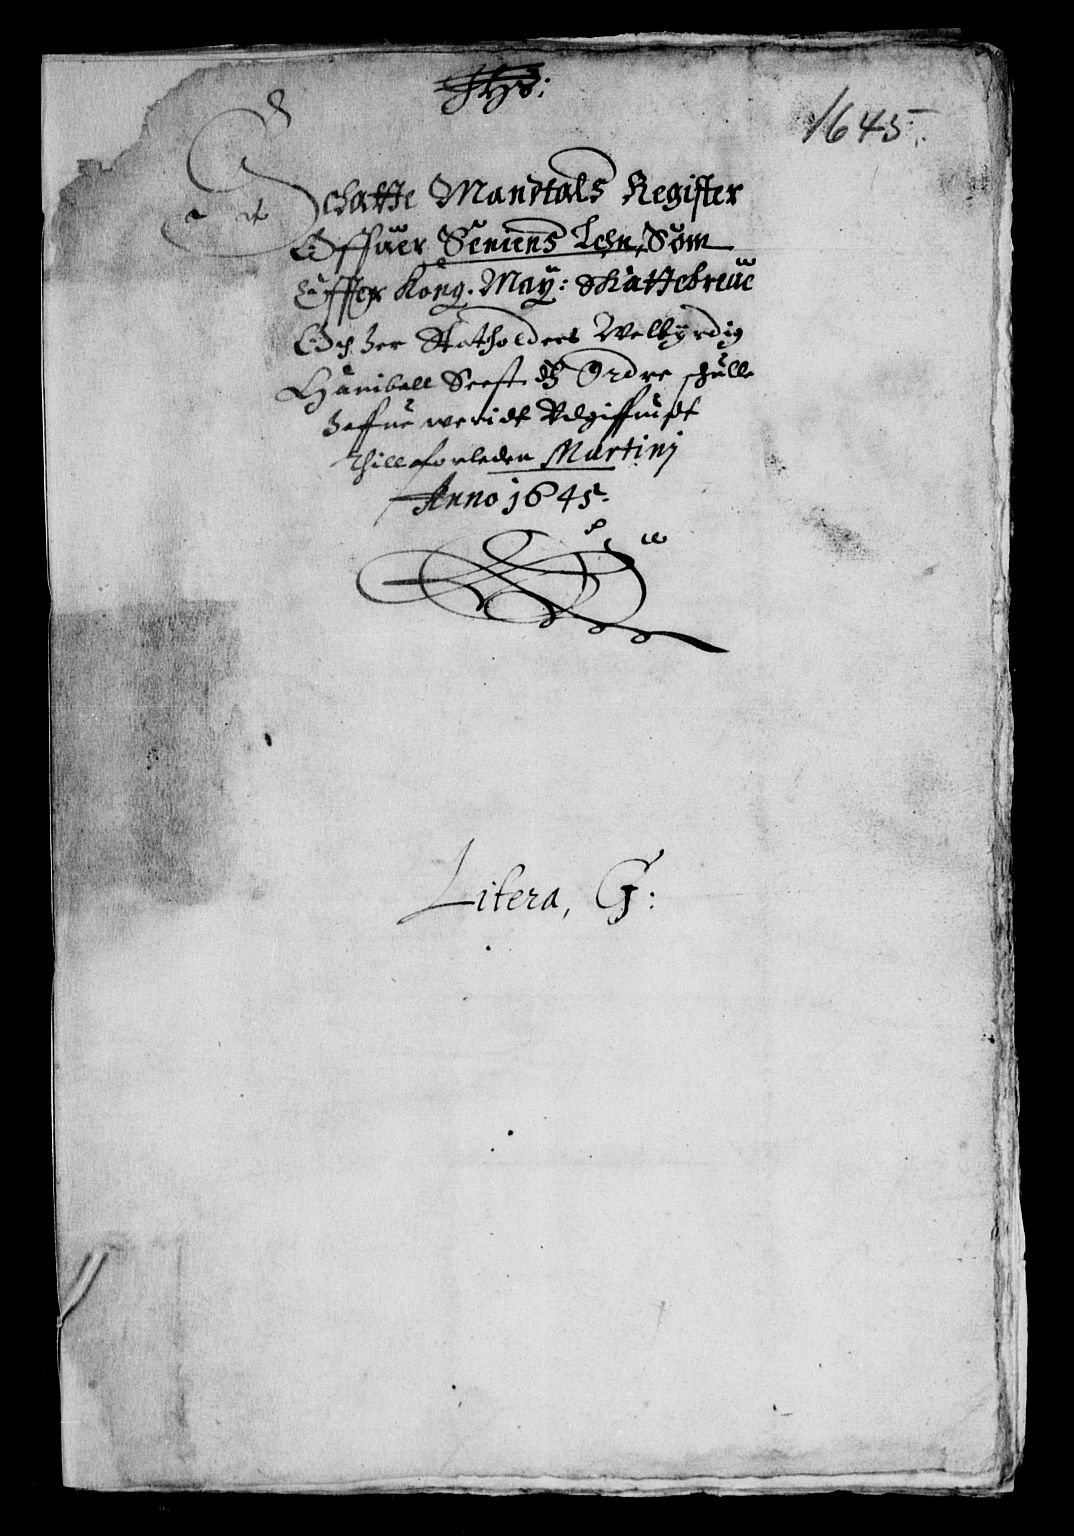 Jhs:
1645.
Schatte Mandtals Register
Offuer Semens Lehn, Som
Efter Kong. May: Skattebreue
Och Her Statholders Welbyrdig
Haniball Seest. Ordre schulle
haffue weridt Udgiffuidt
thill forleden Martinj
Anno 1645.
Litera, G: